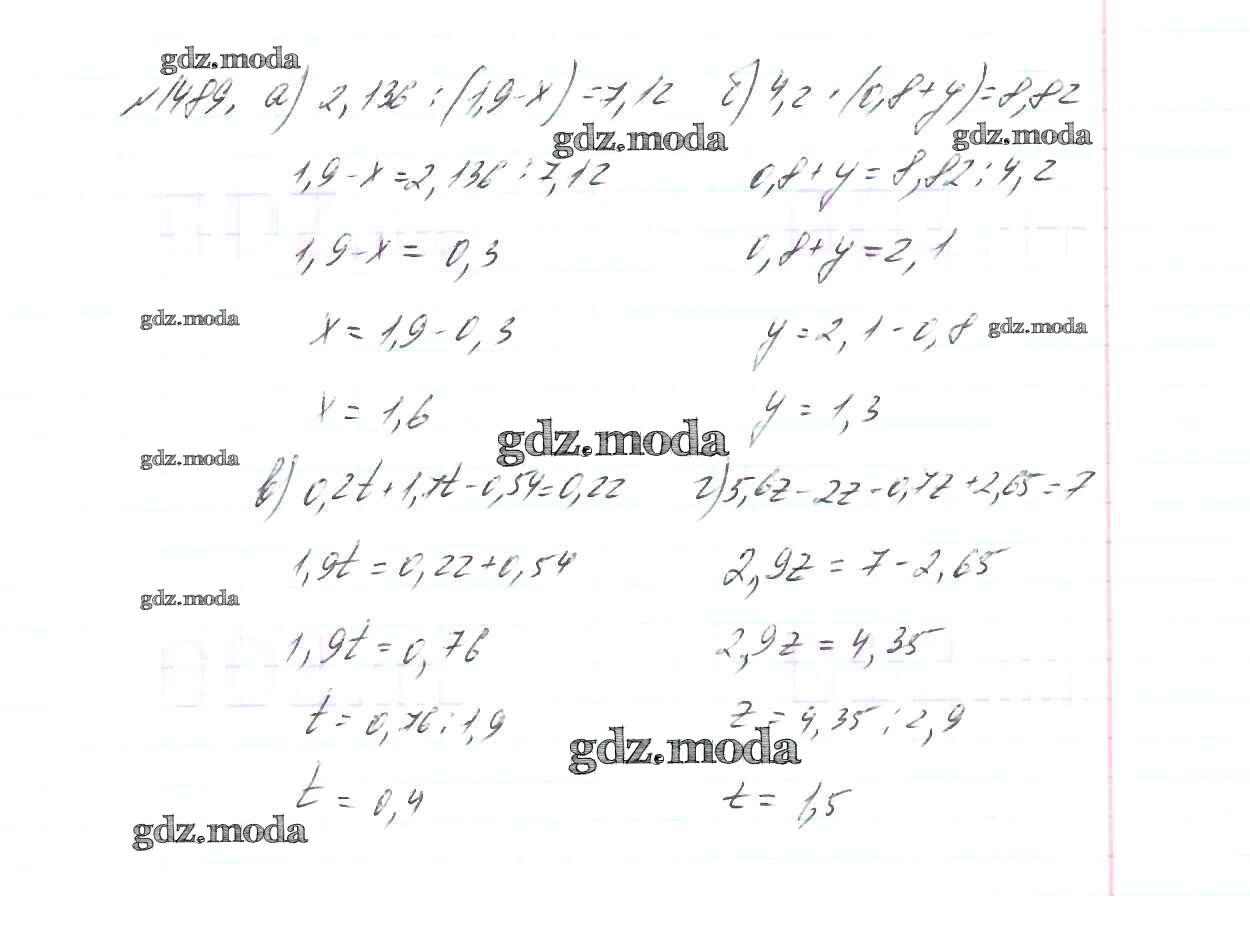 gdz.moda
№1489. а) 2,136 : (1,9-x) = 7,12
1,9-x=2,136 : 7,12
1,9-x = 0,3
x = 1,9-0,3
x = 1,6
б) 4,2 · (0,8+y)=8,82
0,8+y = 8,82 : 4,2
0,8+y=2,1
y =2,1-0,8
y = 1,3
gdz.moda
gdz.moda
gdz.moda
gdz.moda
gdz.moda
gdz.moda
в) 0,2t+1,7t-0,54=0,22
1,9t = 0,22+0,54
1,9t = 0,76
t = 0,76 : 1,9
t = 0,4
г) 5,6z-2z-0,7z+2,65=7
2,9z = 7-2,65
2,9z = 4,35
z = 4,35 : 2,9
z = 1,5
gdz.moda
gdz.moda
gdz.moda